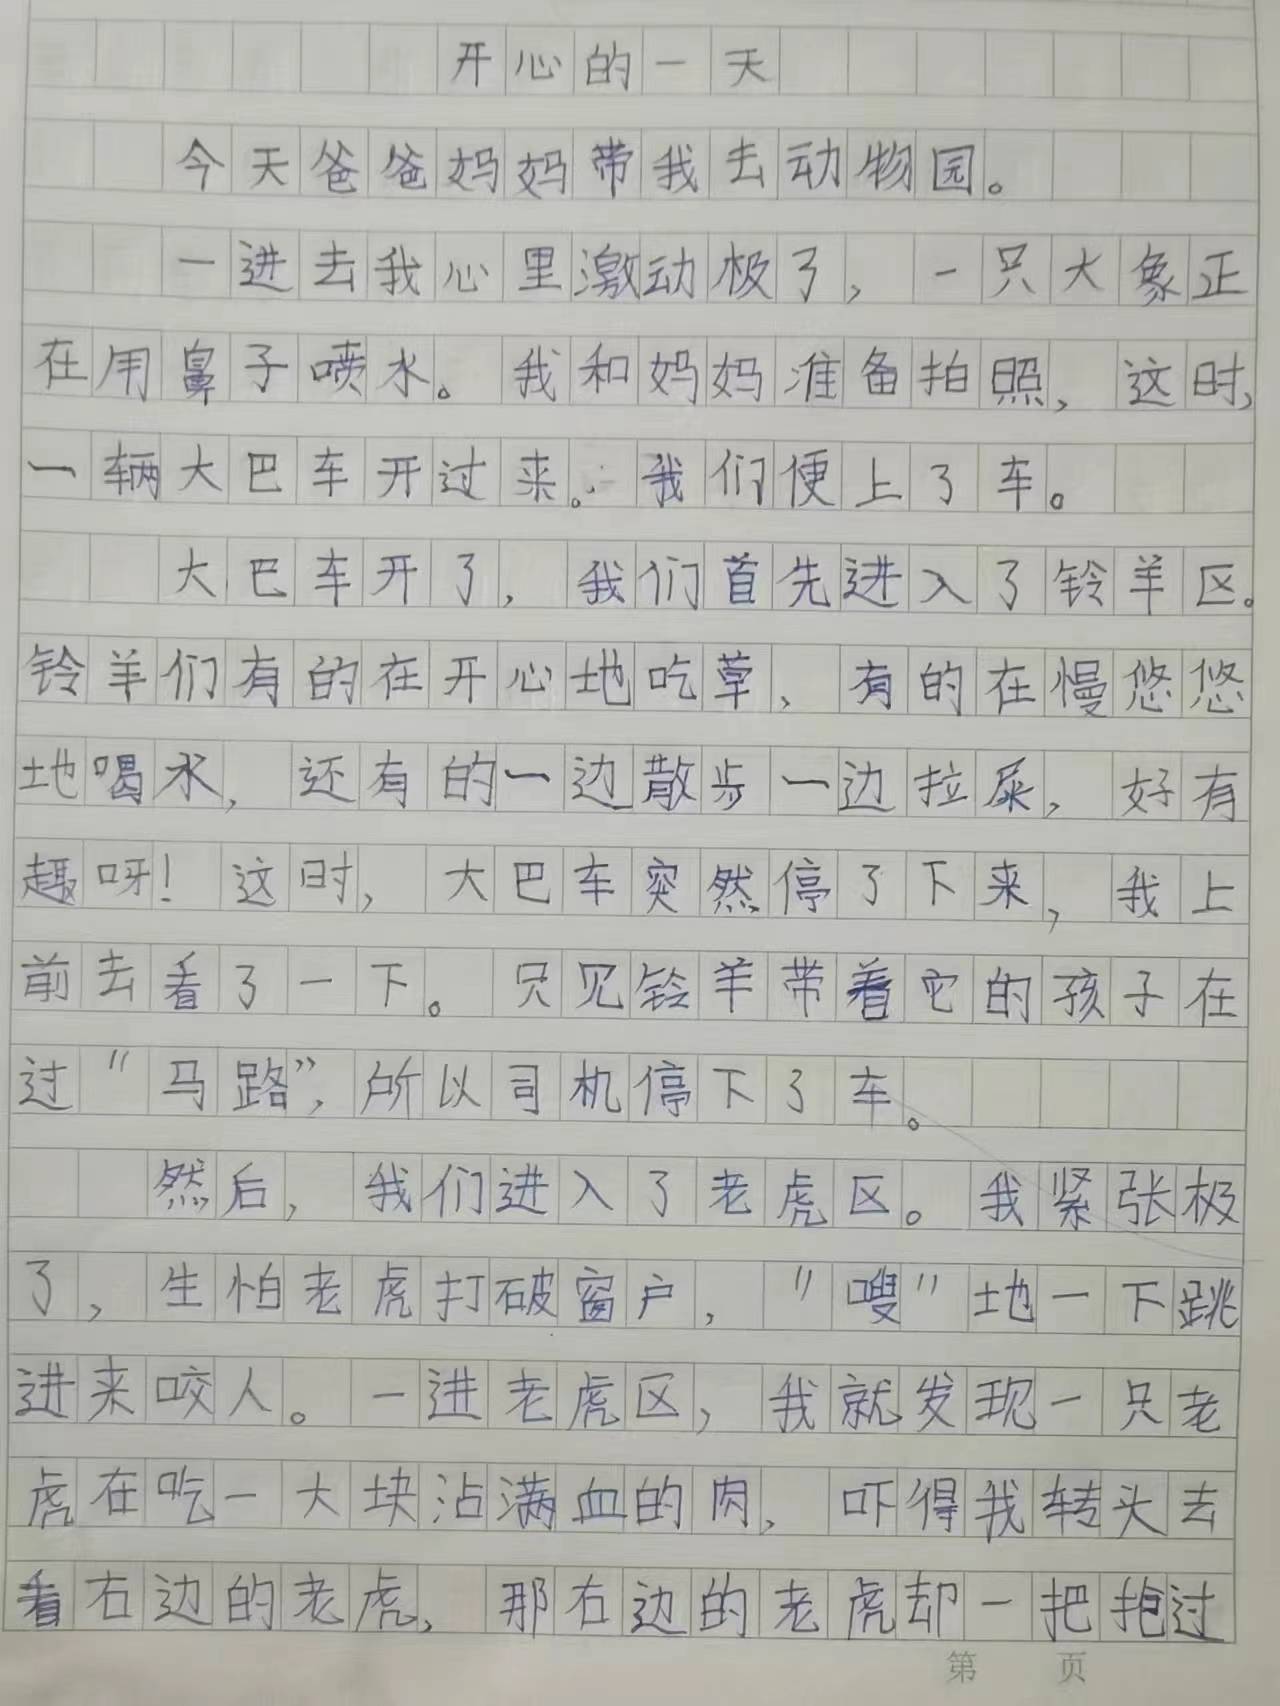 开心的一天
今天爸爸妈妈带我去动物园。
一进去我心里激动极了，一只大象正
在用鼻子喷水。我和妈妈准备拍照，这时，
一辆大巴车开过来。我们便上了车。
大巴车开了，我们首先进入了铃羊区。
铃羊们有的在开心地吃草，有的在慢悠悠
地喝水，还有的一边散步一边拉尿，好有
趣呀！这时，大巴车突然停了下来，我上
前去看了一下。只见铃羊带着它的孩子在
过“马路”，所以司机停下了车。
然后，我们进入了老虎区。我紧张极
了，生怕老虎打破窗户，“嗖”地一下跳
进来咬人。一进老虎区，我就发现一只老
虎在吃一大块沾满血的肉，吓得我转头去
看右边的老虎，那右边的老虎却一把抱过
第 页